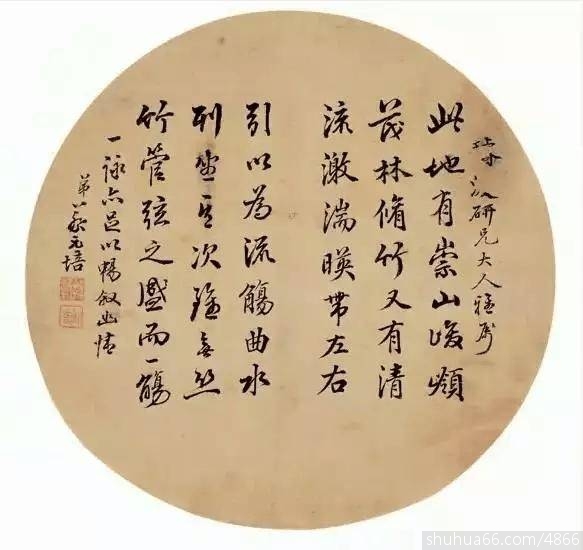 研兄大人雅属
此地有崇山峻領
茂林脩竹又有清
流激湍暎帶左右
引以為流觴曲水
列坐其次雖無丝
竹管弦之盛而一觴
一詠亦足以暢叙幽情
弟蔡元培
shuhua66.com/4866